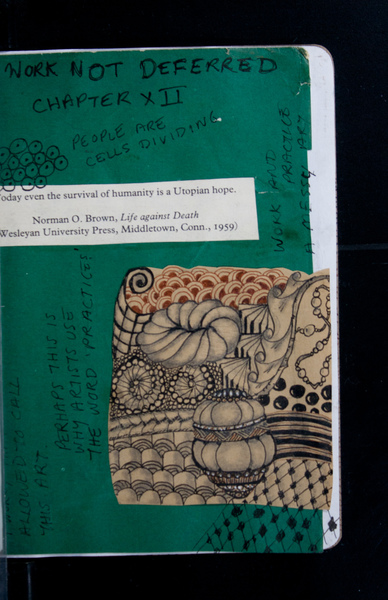 WORK NOT DEFERRED
CHAPTER XII
PEOPLE ARE
CELLS DIVIDING
oday even the survival of humanity is a Utopian hope.
Norman O. Brown, Life against Death
Wesleyan University Press, Middletown, Conn., 1959)
WORK AND
PRACTICE
A MESSY ART
PERHAPS THIS IS
WHY ARTISTS USE
THE WORD 'PRACTICES'
ALLOWED TO CALL
THIS ART